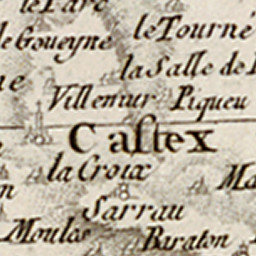 le Parc
le Tourné
le Goueyne
la Salle de
Villemur Piqueu
Caſtex
la Croix
Ma
Sarrau
Moulas Baraton